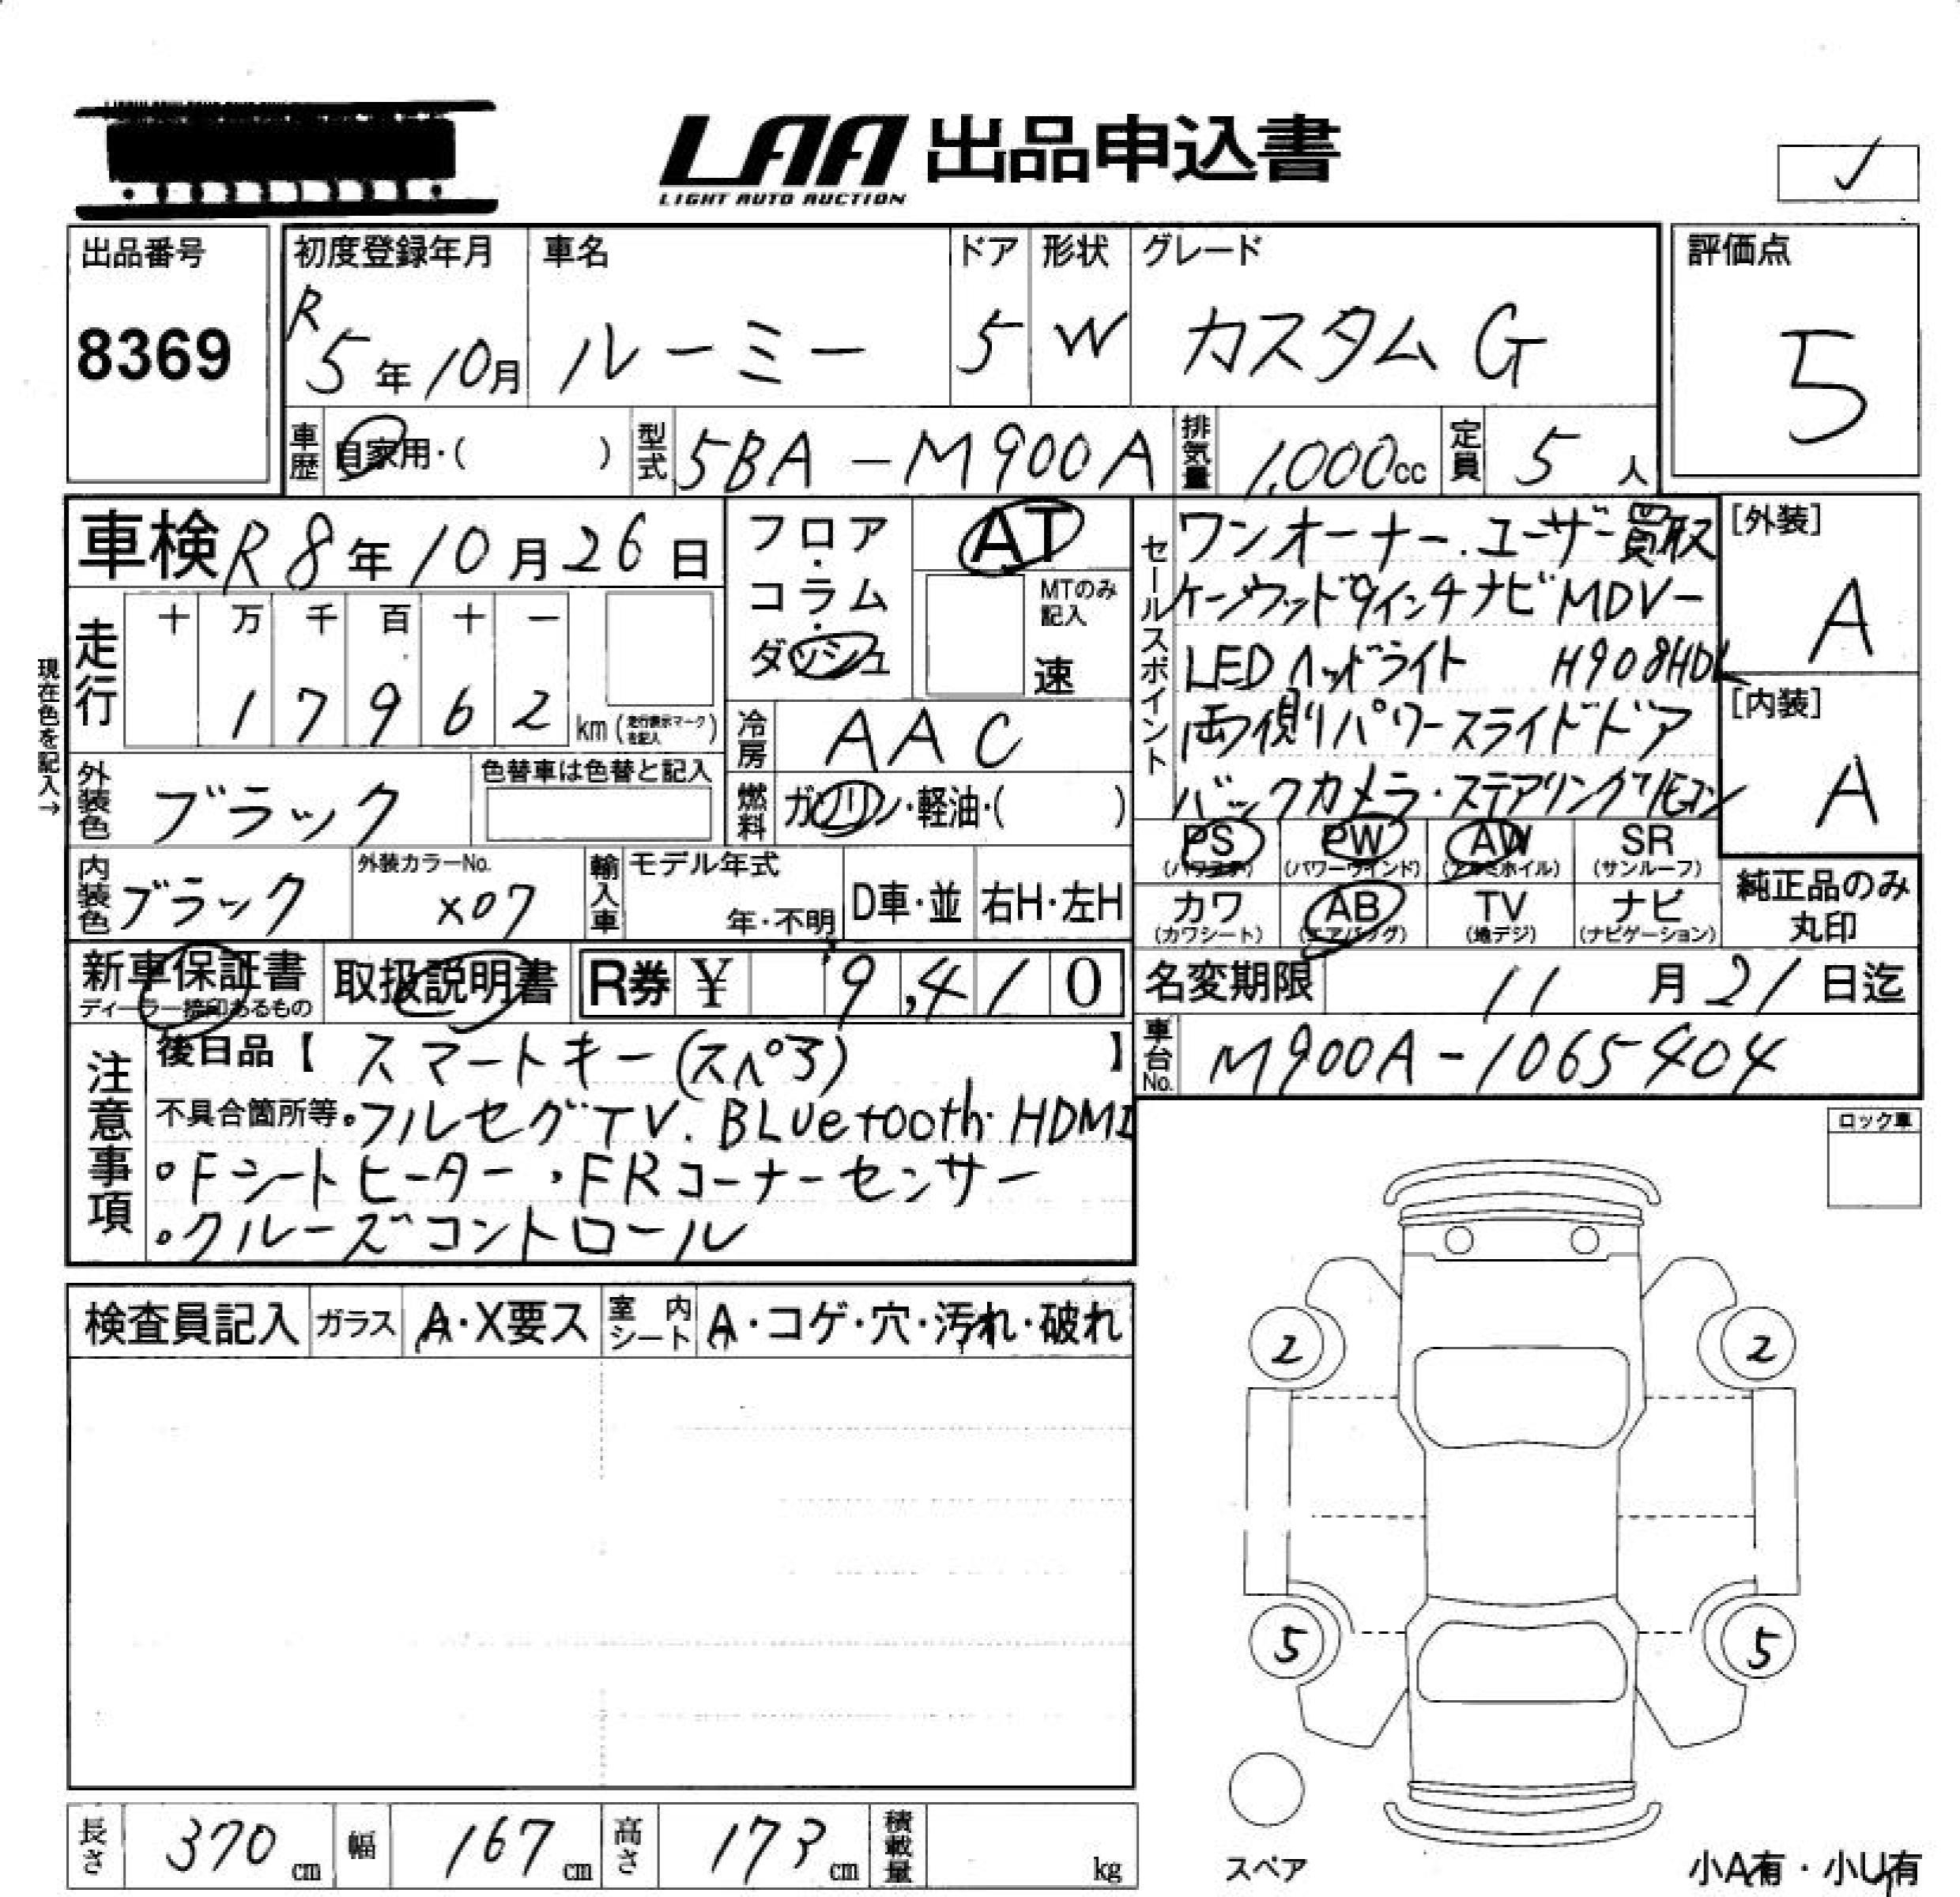 LAA 出品申込書
LIGHT AUTO AUCTION
出品番号 初度登録年月 車名 ドア 形状 グレード 評価点
8369 R5年10月 ルーミー 5 W カスタム G 5
車歴 自家用・( ) 型式 5BA-M900A 排気量 1,000cc 定員 5人
車検 R8年10月26日 フロア・コラム・ダッシュ AT
MTのみ記入 速
セールスポイント ワンオーナー.ユーザー買取
ケンウッド9インチナビ MDV-
LEDヘッドライト H908HDL
両側パワースライドドア
バックカメラ・ステアリングリモコン
[外装] A
[内装] A
現在色を記入→
走行 十 万 千 百 十 一
1 7 9 6 2 km (走行表示マークを記入)
冷房 AAC
外装色 ブラック 色替車は色替と記入
燃料 ガソリン・軽油・( )
PS (パワステ) PW (パワーウインド) AW (アルミホイル) SR (サンルーフ)
カワ (カワシート) AB (エアバッグ) TV (地デジ) ナビ (ナビゲーション)
純正品のみ丸印
内装色 ブラック 外装カラーNo. X07 輸入車 モデル年式 年・不明 D車・並 右H・左H
新車保証書 ディーラー捺印あるもの 取扱説明書 R券 ¥ 9,410 名変期限 11月21日迄
車台No. M900A-1065404
注意事項 後日品【 スマートキー(スペア) 】
不具合箇所等 。フルセグTV.BLuetooth・HDMI
。Fシートヒーター・FRコーナーセンサー
。クルーズコントロール
ロック車
検査員記入 ガラス A・X要ス 室内シート A・コゲ・穴・汚れ・破れ
2 2
5 5
スペア
長さ 370cm 幅 167cm 高さ 173cm 積載量 kg
小A有・小U有